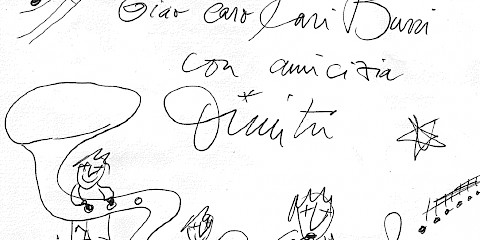 Ciao caro Cari Bussi
con amicizia
Dimitri